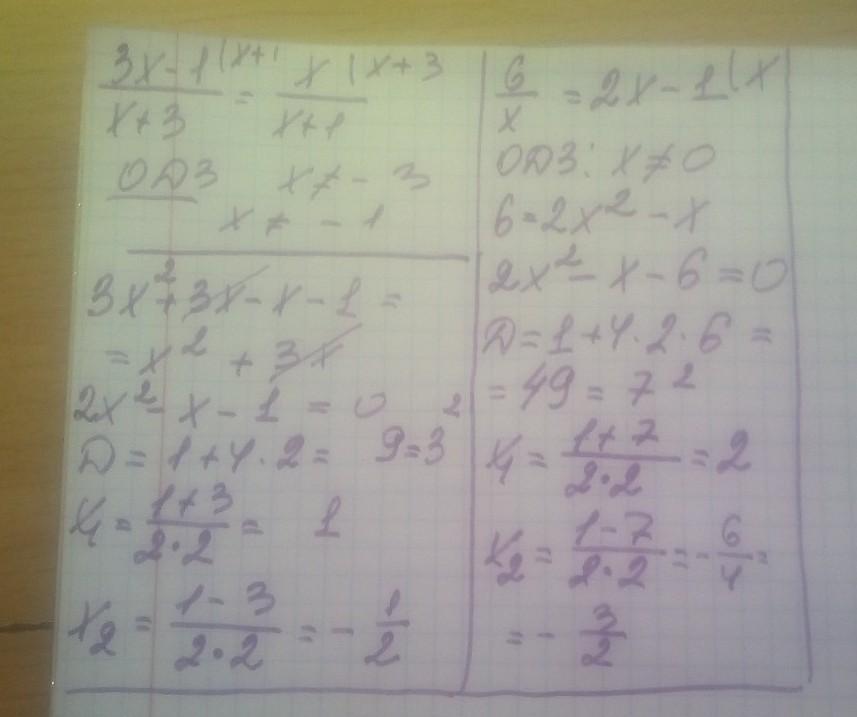 3x-1(x+1 / x+3 = x(x+3 / x+1
ОДЗ x≠-3
x≠-1
3x²+3x-x-1=
=x²+3x
2x²-x-1=0
D=1+4·2= 9=3²
x₁=(1+3)/(2·2)= 1
x₂=(1-3)/(2·2)=-1/2
6/x=2x-1(x
ОДЗ: x≠0
6=2x²-x
2x²-x-6=0
D=1+4·2·6=
=49=7²
x₁=(1+7)/(2·2)=2
x₂=(1-7)/(2·2)=-6/4=
=-3/2